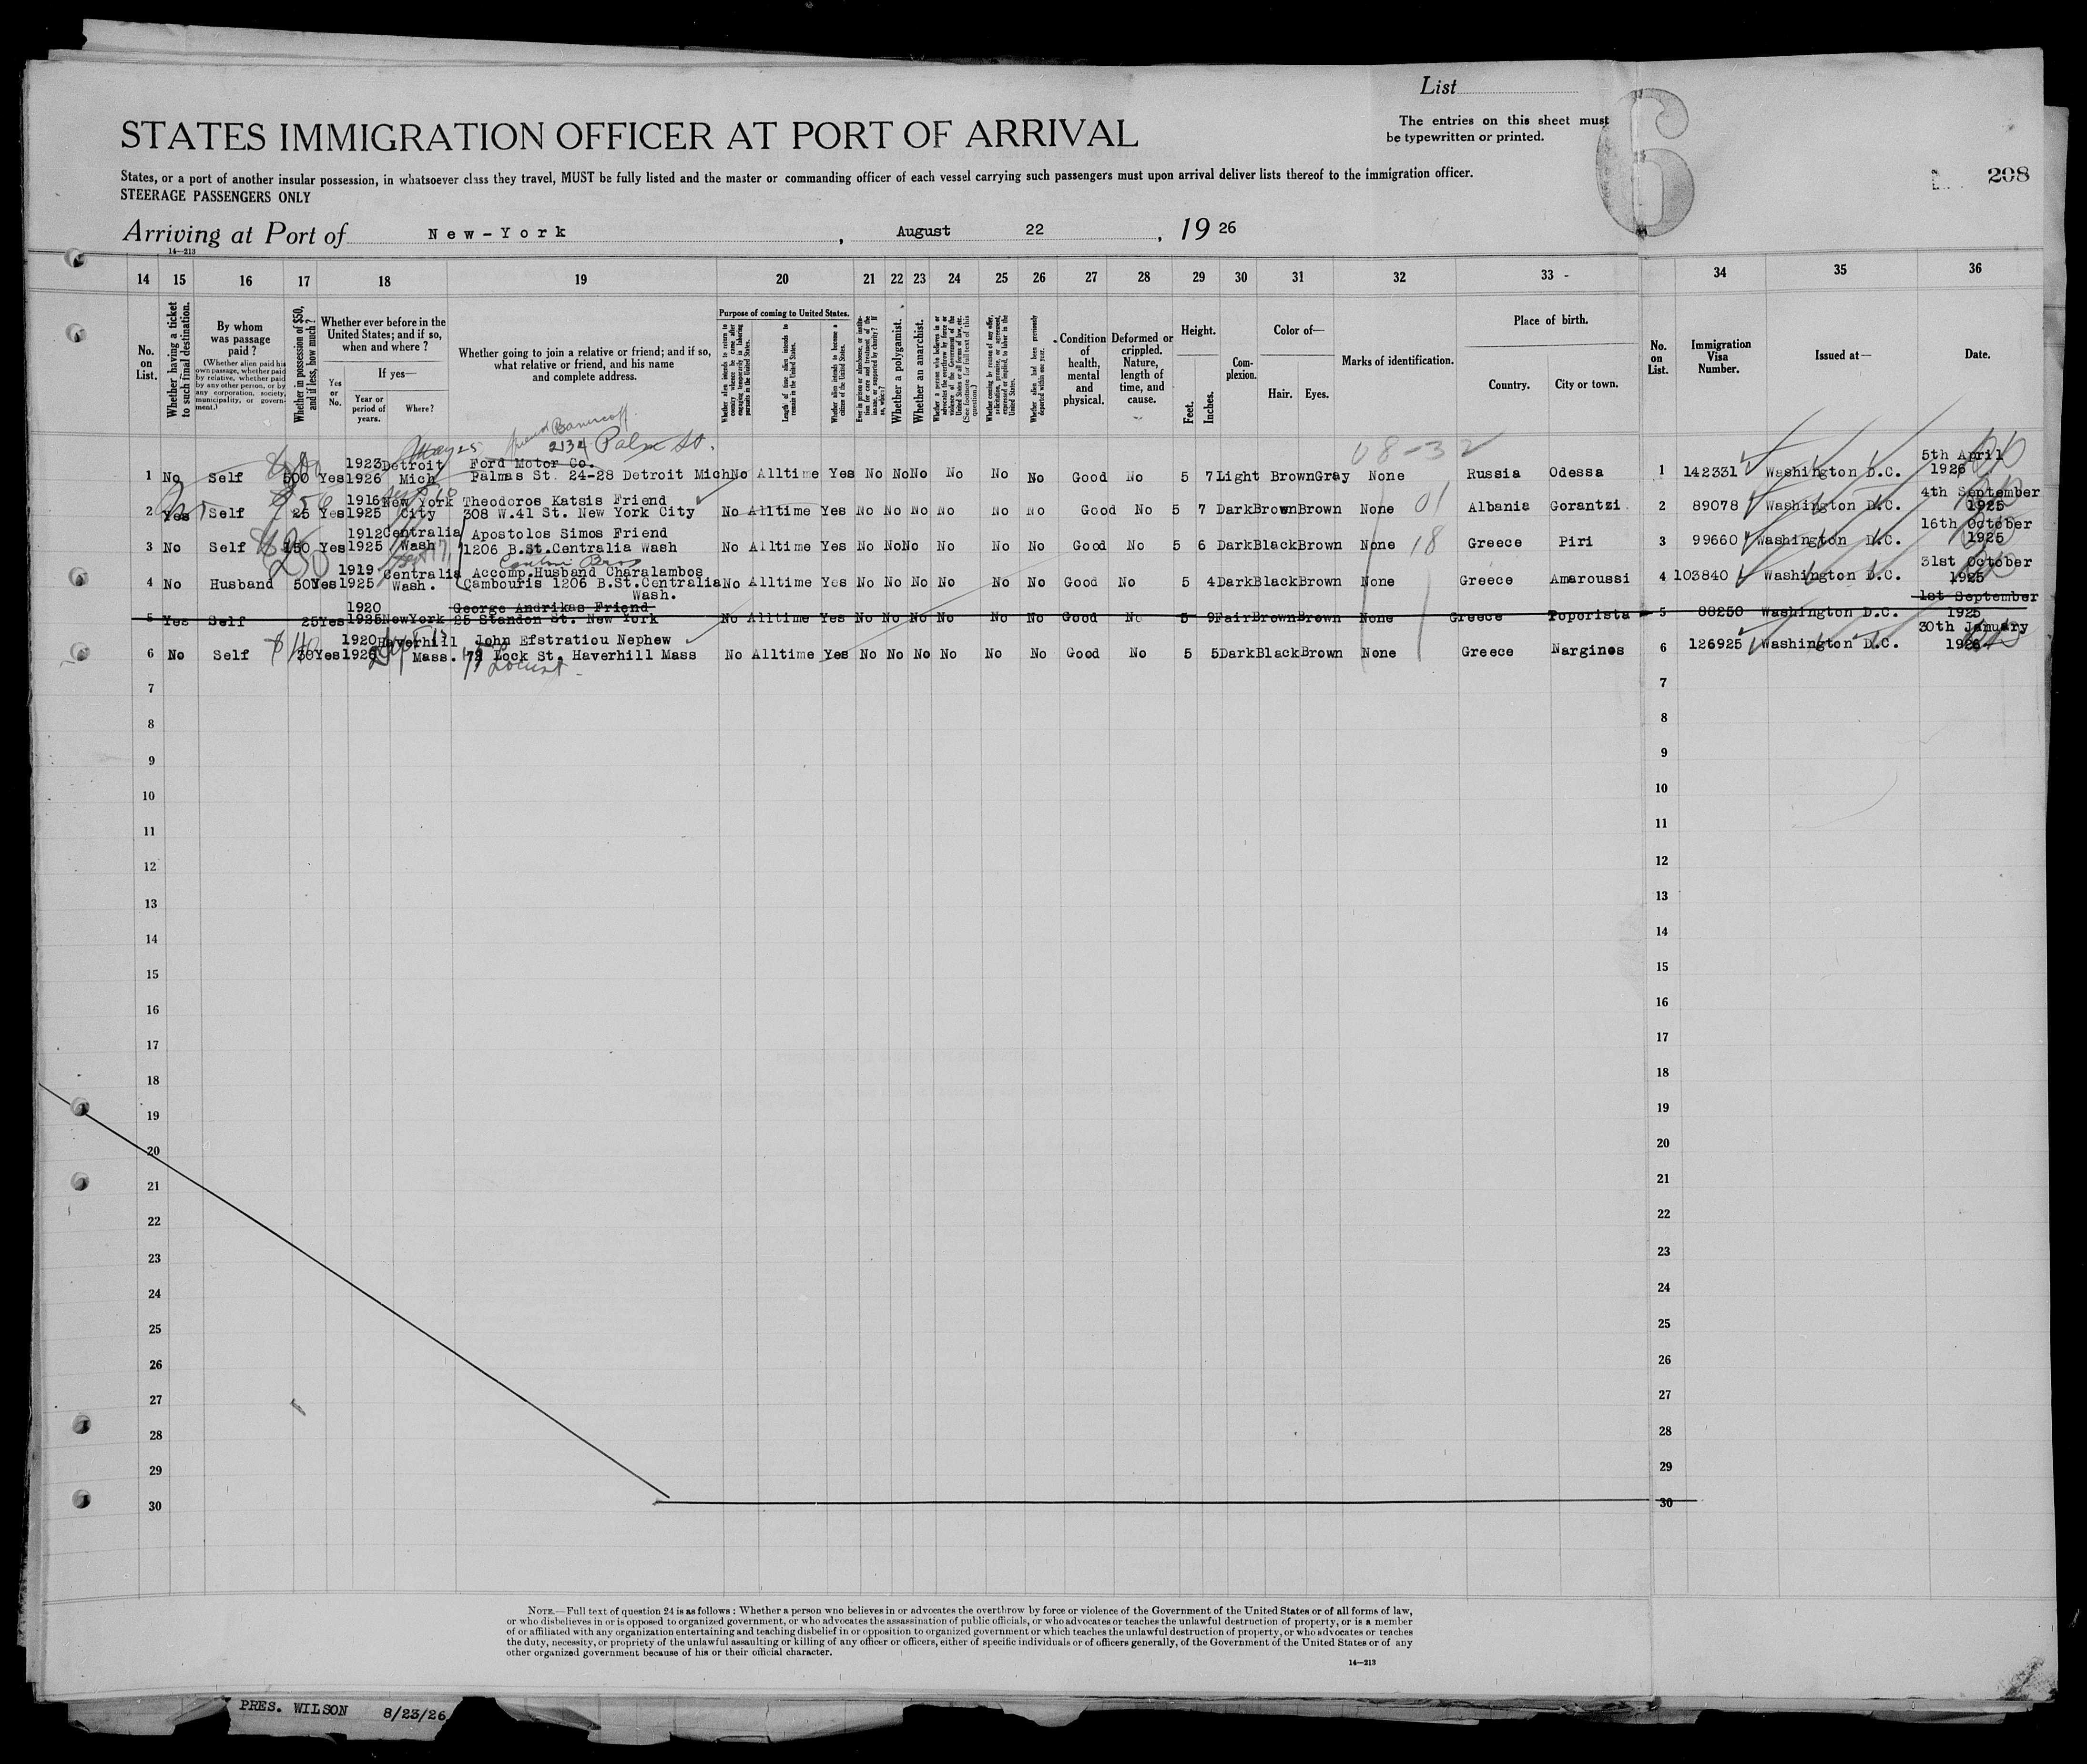 List
The entries on this sheet must
be typewritten or printed.
6
208
STATES IMMIGRATION OFFICER AT PORT OF ARRIVAL
States, or a port of another insular possession, in whatsoever class they travel, MUST be fully listed and the master or commanding officer of each vessel carrying such passengers must upon arrival deliver lists thereof to the immigration officer.
STEERAGE PASSENGERS ONLY
Arriving at Port of New-York, August 22, 1926
14—213
14 15 16 17 18 19 20 21 22 23 24 25 26 27 28 29 30 31 32 33 - 34 35 36
No. on List.
Whether having a ticket to such final destination.
By whom was passage paid?
(Whether alien paid his own passage, whether paid by relative, whether paid by any other person, or by any corporation, society, municipality, or government.)
Whether in possession of $50, and if less, how much?
Whether ever before in the United States; and if so, when and where?
Yes or No.
If yes—
Year or period of years.
Where?
Whether going to join a relative or friend; and if so, what relative or friend, and his name and complete address.
Purpose of coming to United States.
Whether alien intends to return to country whence he came after engaging temporarily in laboring pursuits in the United States.
Length of time alien intends to remain in the United States.
Whether alien intends to become a citizen of the United States.
Ever in prison or almshouse, or institution for care and treatment of the insane, or supported by charity? If so, which?
Whether a polygamist.
Whether an anarchist.
(See footnote for full text of this question.)
Whether coming by reason of any offer, solicitation, promise, or agreement, expressed or implied, to labor in the United States.
Whether alien had been previously deported within one year.
Condition of health, mental and physical.
Deformed or crippled. Nature, length of time, and cause.
Height.
Feet. Inches.
Complexion.
Color of—
Hair. Eyes.
Marks of identification.
Place of birth.
Country. City or town.
No. on List.
Immigration Visa Number.
Issued at—
Date.
friend Bancroff
2134 Palm St.
08-32
1 No Self 500 Yes 1923 1926 Detroit Mich Ford Motor Co. Palmas St. 24-28 Detroit Mich No Alltime Yes No No No No No No Good No 5 7 Light Brown Gray None Russia Odessa 1 142331 Washington D.C. 5th April 1926
2 Yes Self 25 Yes 1916 1925 New York City Theodoros Katsis Friend 308 W.41 St. New York City No Alltime Yes No No No No No No Good No 5 7 Dark Brown Brown None 01 Albania Gorantzi 2 89078 Washington D.C. 4th September 1925
3 No Self 150 Yes 1912 1925 Centralia Wash Apostolos Simos Friend 1206 B.St.Centralia Wash No Alltime Yes No No No No No No Good No 5 6 Dark Black Brown None 18 Greece Piri 3 99660 Washington D.C. 16th October 1925
4 No Husband 50 Yes 1919 1925 Centralia Wash. Accomp.Husband Charalambos Cambouris 1206 B.St.Centralia Wash. No Alltime Yes No No No No No No Good No 5 4 Dark Black Brown None Greece Amaroussi 4 103840 Washington D.C. 31st October 1925
5 Yes Self 25 Yes 1920 1925 NewYork George Andrikas Friend 25 Standon St. New York No Alltime Yes No No No No No No Good No 5 9 Fair Brown Brown None Greece Toporista 5 88250 Washington D.C. 1st September 1925
6 No Self 30 Yes 1920 1926 Haverhill Mass. John Efstratiou Nephew Lock St. Haverhill Mass No Alltime Yes No No No No No No Good No 5 5 Dark Black Brown None Greece Nargines 6 126925 Washington D.C. 30th January 1926
Locust
7 7
8 8
9 9
10 10
11 11
12 12
13 13
14 14
15 15
16 16
17 17
18 18
19 19
20 20
21 21
22 22
23 23
24 24
25 25
26 26
27 27
28 28
29 29
30 30
NOTE.—Full text of question 24 is as follows: Whether a person who believes in or advocates the overthrow by force or violence of the Government of the United States or of all forms of law,
or who disbelieves in or is opposed to organized government, or who advocates the assassination of public officials, or who advocates or teaches the unlawful destruction of property, or is a member
of or affiliated with any organization entertaining and teaching disbelief in or opposition to organized government or which teaches the unlawful destruction of property, or who advocates or teaches
the duty, necessity, or propriety of the unlawful assaulting or killing of any officer or officers, either of specific individuals or of officers generally, of the Government of the United States or of any
other organized government because of his or their official character.
14—213
PRES. WILSON 8/23/26